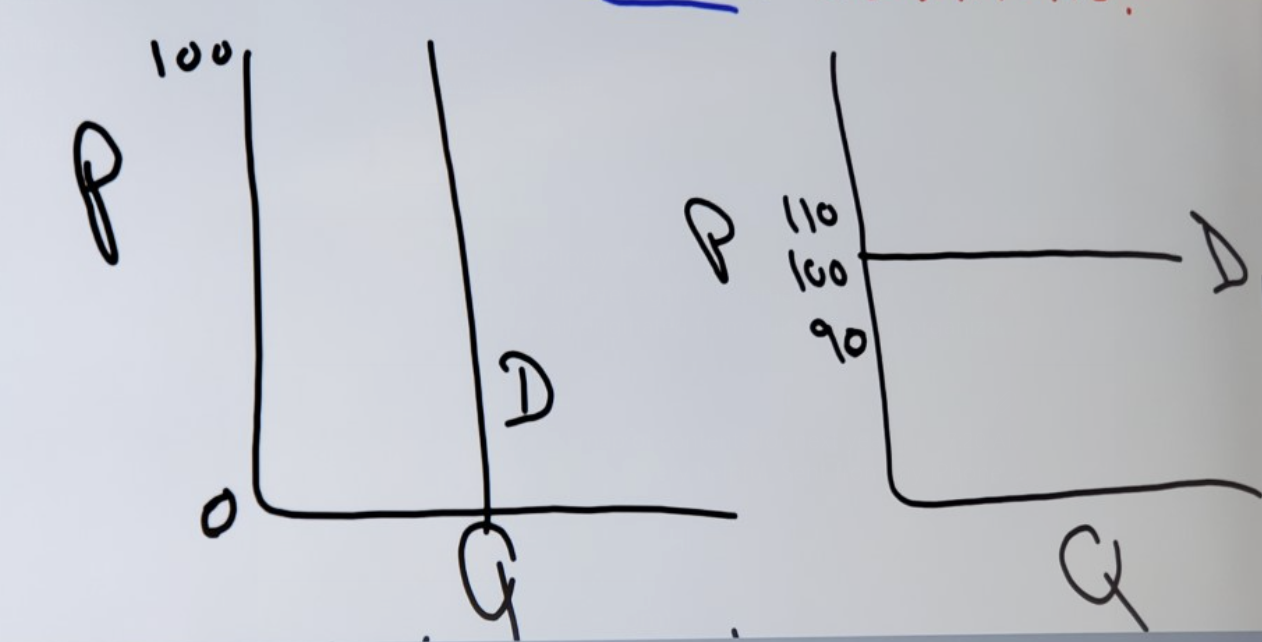 100
P
D
0
Q
P
110
100
90
D
Q